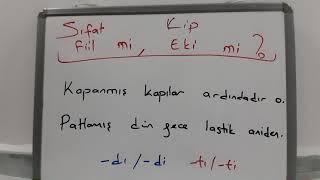 Sıfat Kip
Fiil mi, Eki mi ?
Kapanmış kapılar ardındadır o.
Patlamış dün gece lastik aniden.
-dı / -di -tı / -ti